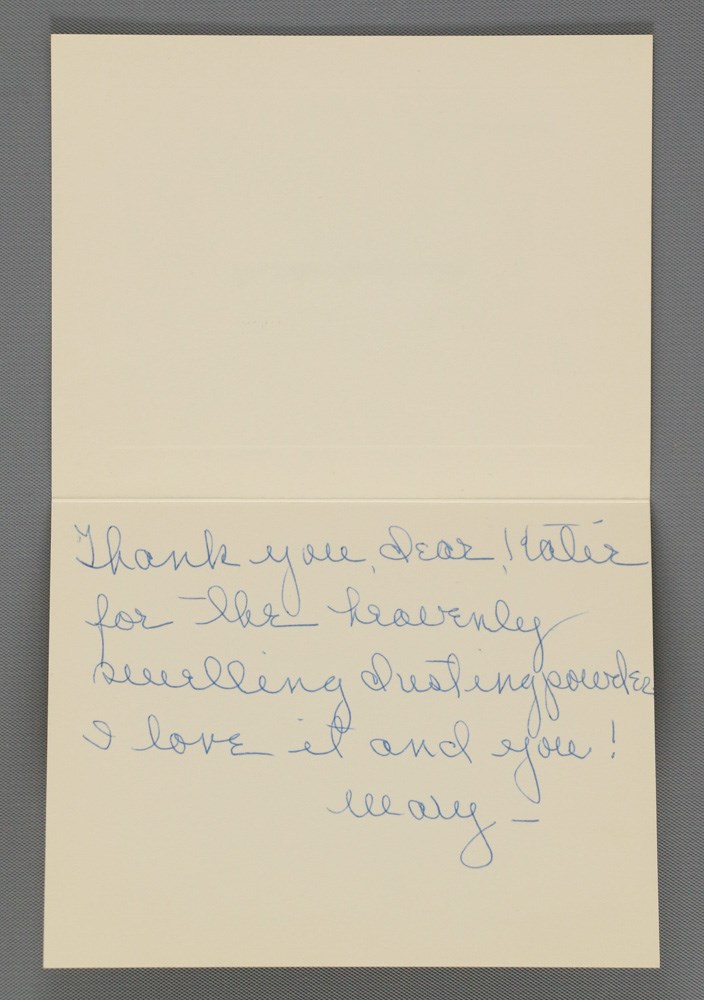 Thank you, dear, Katie
for the heavenly
smelling dusting powder
I love it and you!
Mary -